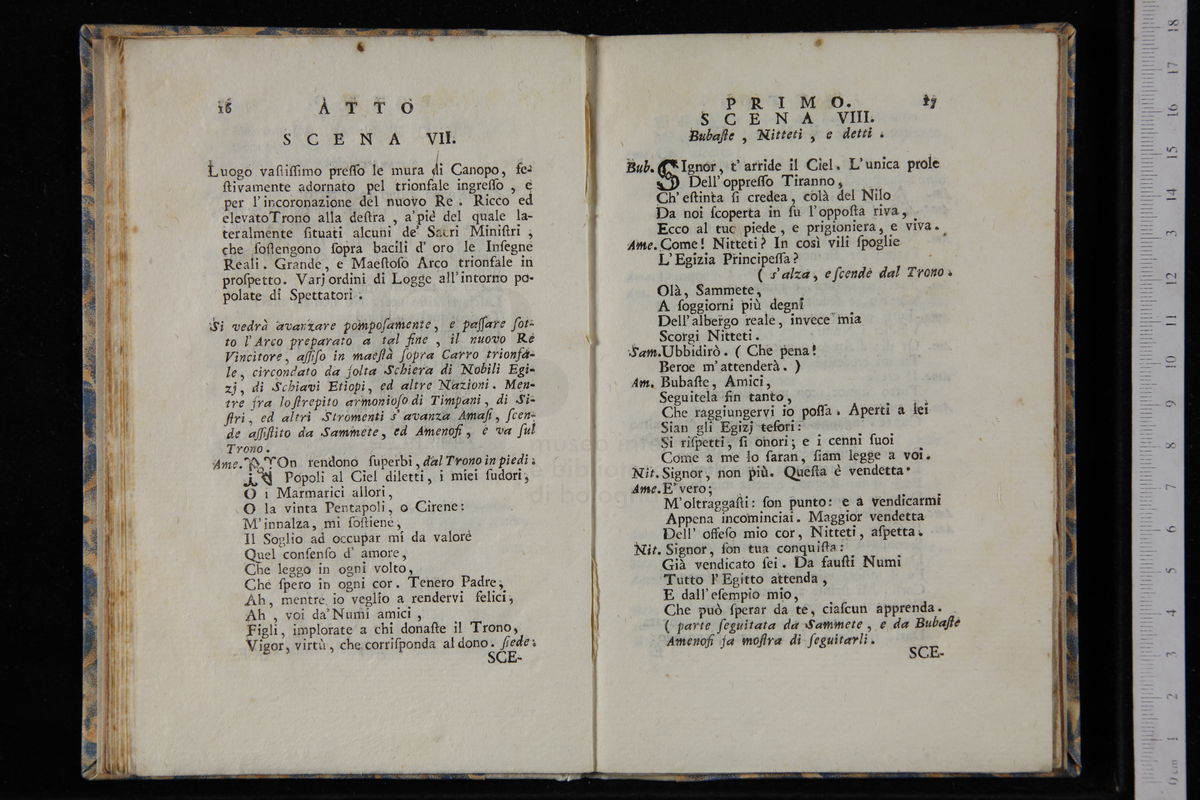 16
ATTO
SCENA VII.
Luogo vaſtiſſimo preſſo le mura di Canopo, fe-
ſtivamente adornato pel trionfale ingreſſo , e
per l'incoronazione del nuovo Re . Ricco ed
elevatoTrono alla deſtra , a'piè del quale la-
teralmente ſituati alcuni de' Sacri Miniſtri ,
che ſoſtengono ſopra bacili d' oro le Inſegne
Reali. Grande, e Maeſtoſo Arco trionfale in
proſpetto. Varj ordini di Logge all'intorno po-
polate di Spettatori .
Si vedrà avanzare pompoſamente, e paſſare ſot-
to l'Arco preparato a tal fine , il nuovo Re
Vincitore, aſſiſo in maeſtà ſopra Carro trionfa-
le, circondato da folta Schiera di Nobili Egi-
zj, di Schiavi Etiopi, ed altre Nazioni. Men-
tre fra lo ſtrepito armonioſo di Timpani, di Si-
ſtri, ed altri Stromenti s'avanza Amaſi, ſcen-
de aſſiſtito da Sammete, ed Amenofi, e va ſul
Trono.
Ame. NOn rendono ſuperbi, dal Trono in piedi.
Popoli al Ciel diletti, i miei ſudori,
O i Marmarici allori,
O la vinta Pentapoli, o Cirene:
M'innalza, mi ſoſtiene,
Il Soglio ad occupar mi da valore
Quel conſenſo d' amore,
Che leggo in ogni volto,
Che ſpero in ogni cor. Tenero Padre,
Ah, mentre io veglio a rendervi felici,
Ah , voi da'Numi amici ,
Figli, implorate a chi donaſte il Trono,
Vigor, virtù, che corriſponda al dono. ſiede.
SCE-
PRIMO.
17
SCENA VIII.
Bubaſte , Nitteti , e detti .
Bub. SIgnor, t' arride il Ciel. L'unica prole
Dell'oppreſſo Tiranno,
Ch'eſtinta ſi credea, colà del Nilo
Da noi ſcoperta in ſu l'oppoſta riva,
Ecco al tuo piede, e prigioniera, e viva.
Ame. Come! Nitteti? In così vili ſpoglie
L'Egizia Principeſſa?
( s'alza, e ſcende dal Trono.
Olà, Sammete,
A ſoggiorni più degni
Dell'albergo reale, invece mia
Scorgi Nitteti.
Sam. Ubbidirò. ( Che pena!
Beroe m'attenderà. )
Am. Bubaſte, Amici,
Seguitela fin tanto,
Che raggiungervi io poſſa. Aperti a lei
Sian gli Egizj teſori:
Si riſpetti, ſi onori; e i cenni ſuoi
Come a me lo ſaran, ſiam legge a voi.
Nit. Signor, non più. Queſta è vendetta.
Ame. E' vero;
M'oltraggaſti: ſon punto: e a vendicarmi
Appena incominciai. Maggior vendetta
Dell' offeſo mio cor, Nitteti, aſpetta.
Nit. Signor, ſon tua conquiſta:
Già vendicato ſei. Da fauſti Numi
Tutto l'Egitto attenda ,
E dall'eſempio mio,
Che può ſperar da te, ciaſcun apprenda.
( parte ſeguitata da Sammete, e da Bubaſte
Amenofi fa moſtra di ſeguitarli.
SCE-